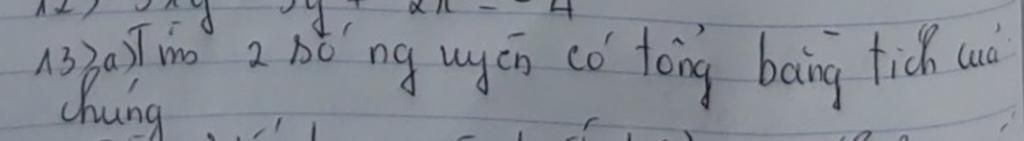 13) a) Tìm 2 số nguyên có tổng bằng tích của
chúng